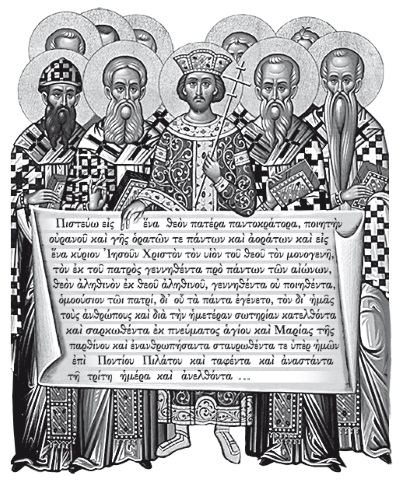 Πιστεύω εἰς ἕνα θεὸν πατέρα παντοκράτορα, ποιητὴν
οὐρανοῦ καὶ γῆς ὁρατῶν τε πάντων και ἀοράτων καὶ εἰς
ἕνα κύριον Ἰησοῦν Χριστὸν τὸν υἱὸν τοῦ θεοῦ τὸν μονογενῆ,
τὸν ἐκ τοῦ πατρὸς γεννηθέντα πρὸ πάντων τῶν αἰώνων,
θεὸν ἀληθινὸν ἐκ θεοῦ ἀληθινοῦ, γεννηθέντα οὐ ποιηθέντα,
ὁμοούσιον τῶι πατρί, δι' οὗ τὰ πάντα ἐγένετο, τὸν δι' ἡμᾶς
τοὺς ἀνθρώπους καὶ διὰ τὴν ἡμετέραν σωτηρίαν κατελθόντα
καὶ σαρκωθέντα ἐκ πνεύματος ἁγίου καὶ Μαρίας τῆς
παρθίνου καὶ ἐνανθρωπήσαντα σταυρωθέντα τε ὑπὲρ ἡμῶν
ἐπὶ Ποντίου Πιλάτου καὶ ταφέντα καὶ ἀναστάντα
τῆ τρίτη ἡμέρα καὶ ἀνελθόντα ...